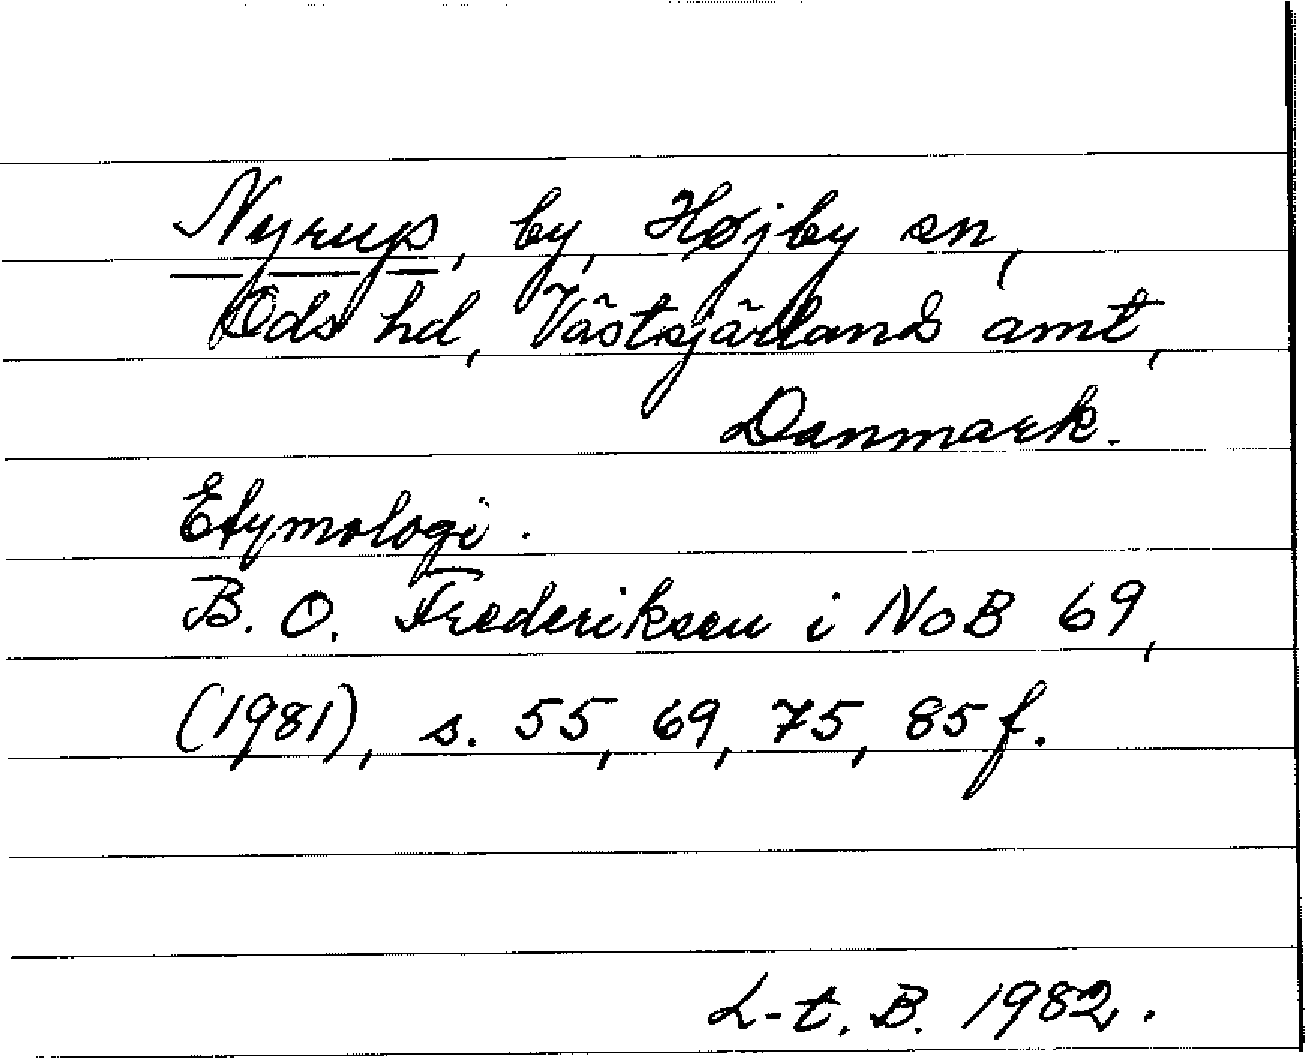 Nyrup, by, Højby sn,
Ods hd, Västsjällands amt,
Danmark.
Etymologi.
B. O. Frederiksen i NoB 69,
(1981), s. 55, 69, 75, 85 f.
L-t. B. 1982.